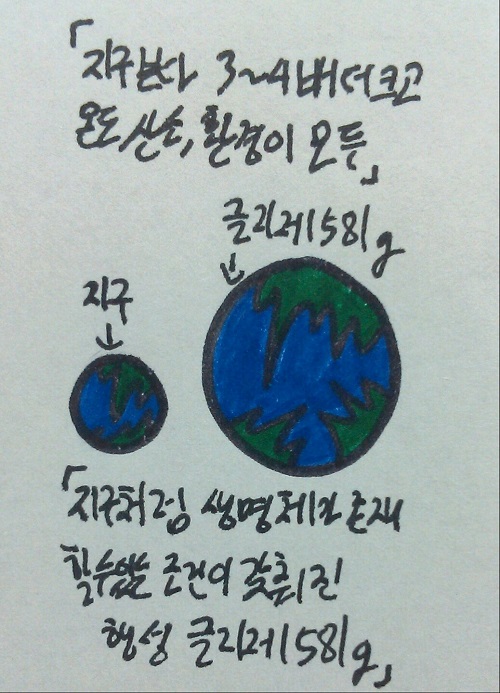 「지구보다 3~4배 더 크고
온도, 산소, 환경이 모두」
글리제 581g
지구
「지구처럼 생명체가 존재
할수있는 조건이 갖춰진
행성 글리제 581g」